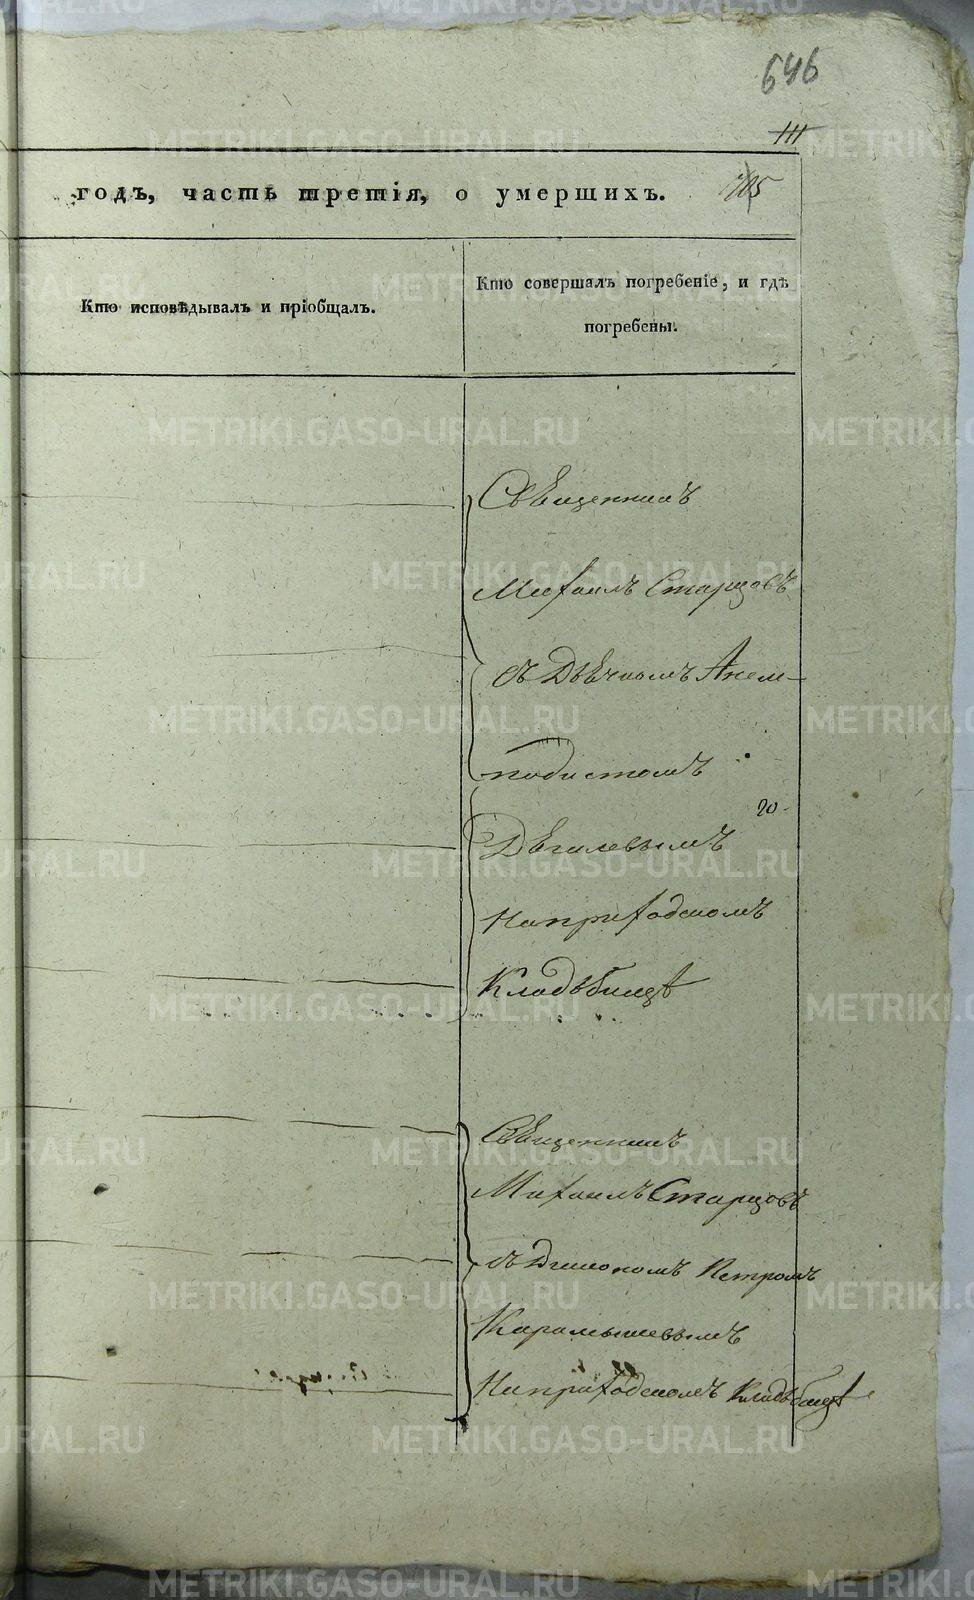 646
111
годъ, часть третія, о умершихъ.
705
Кто исповѣдывалъ и пріобщалъ.
Кто совершалъ погребеніе, и гдѣ
погребены.
Священникъ
Михаилъ Старцовъ
съ Дьячкомъ Анем-
подистомъ
Дягилевымъ
На приходскомъ
Кладбищѣ
Священникъ
Михаилъ Старцовъ
съ Діакономъ Петромъ
Карамышевымъ
На приходскомъ Кладбищѣ
METRIKI.GASO-URAL.RU